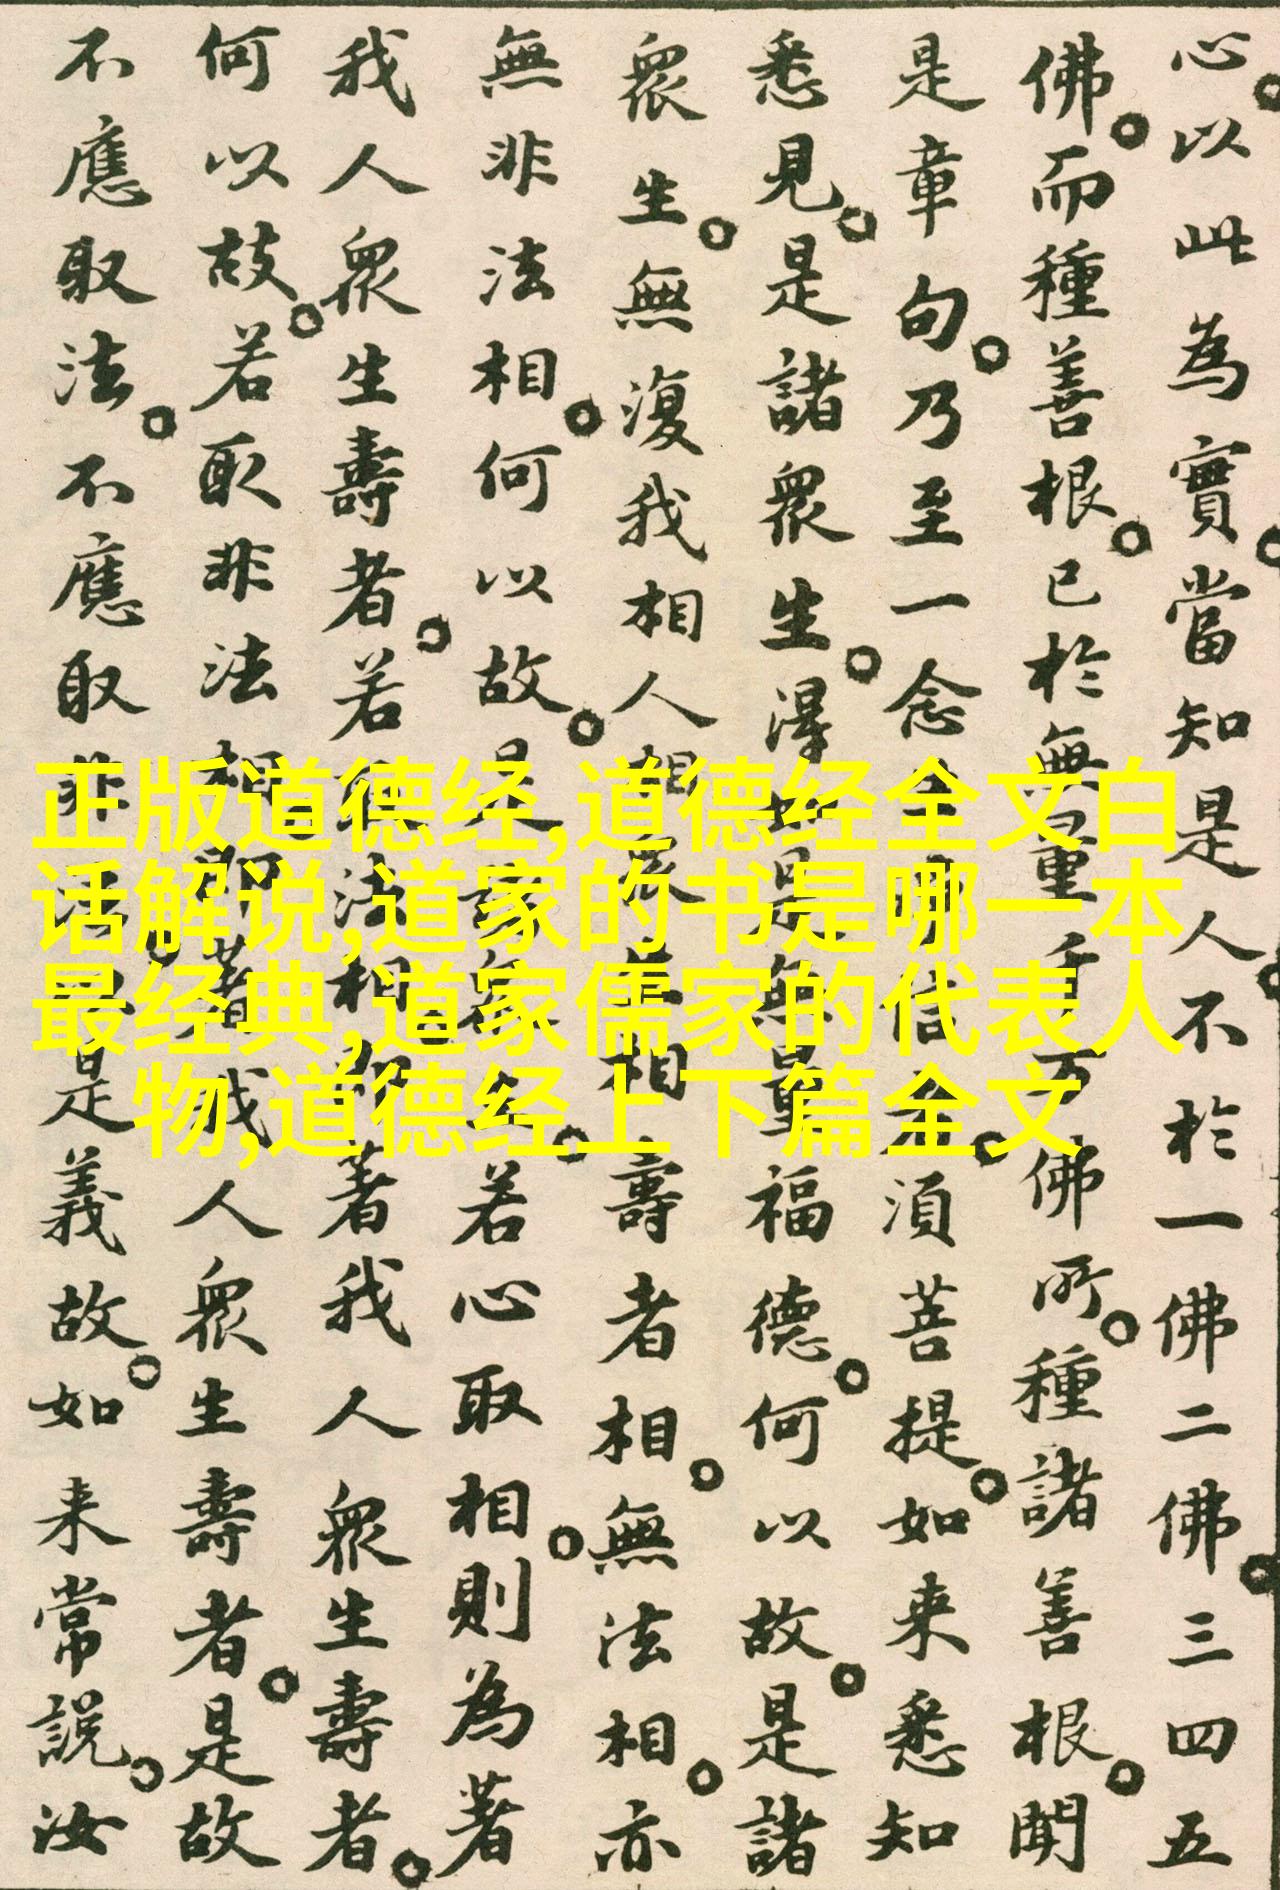 心。以此為實。當知是人。不於一佛二佛。三四五
佛。而種善根。已於無量千万佛所。種諸善根。聞
是章句。乃至一念淨信。須菩提。如来悉知
悉見。是諸眾生。淂是無量福德。何以故。是諸
眾生。無復我相人相眾相壽者相。無法相。亦
無非法相。何以故。是諸眾。若心取相。則為著
我人眾生壽者。若取法相。即著我人眾生壽者。
何以故。若取非法相即著我人眾生壽者。是故
不應取法。不應取非法。是義故。如来常說。汝
正版道德经,道德经全文白
话解说,道家的书是哪一本
最经典,道家儒家的代表人
物,道德经上下篇全文